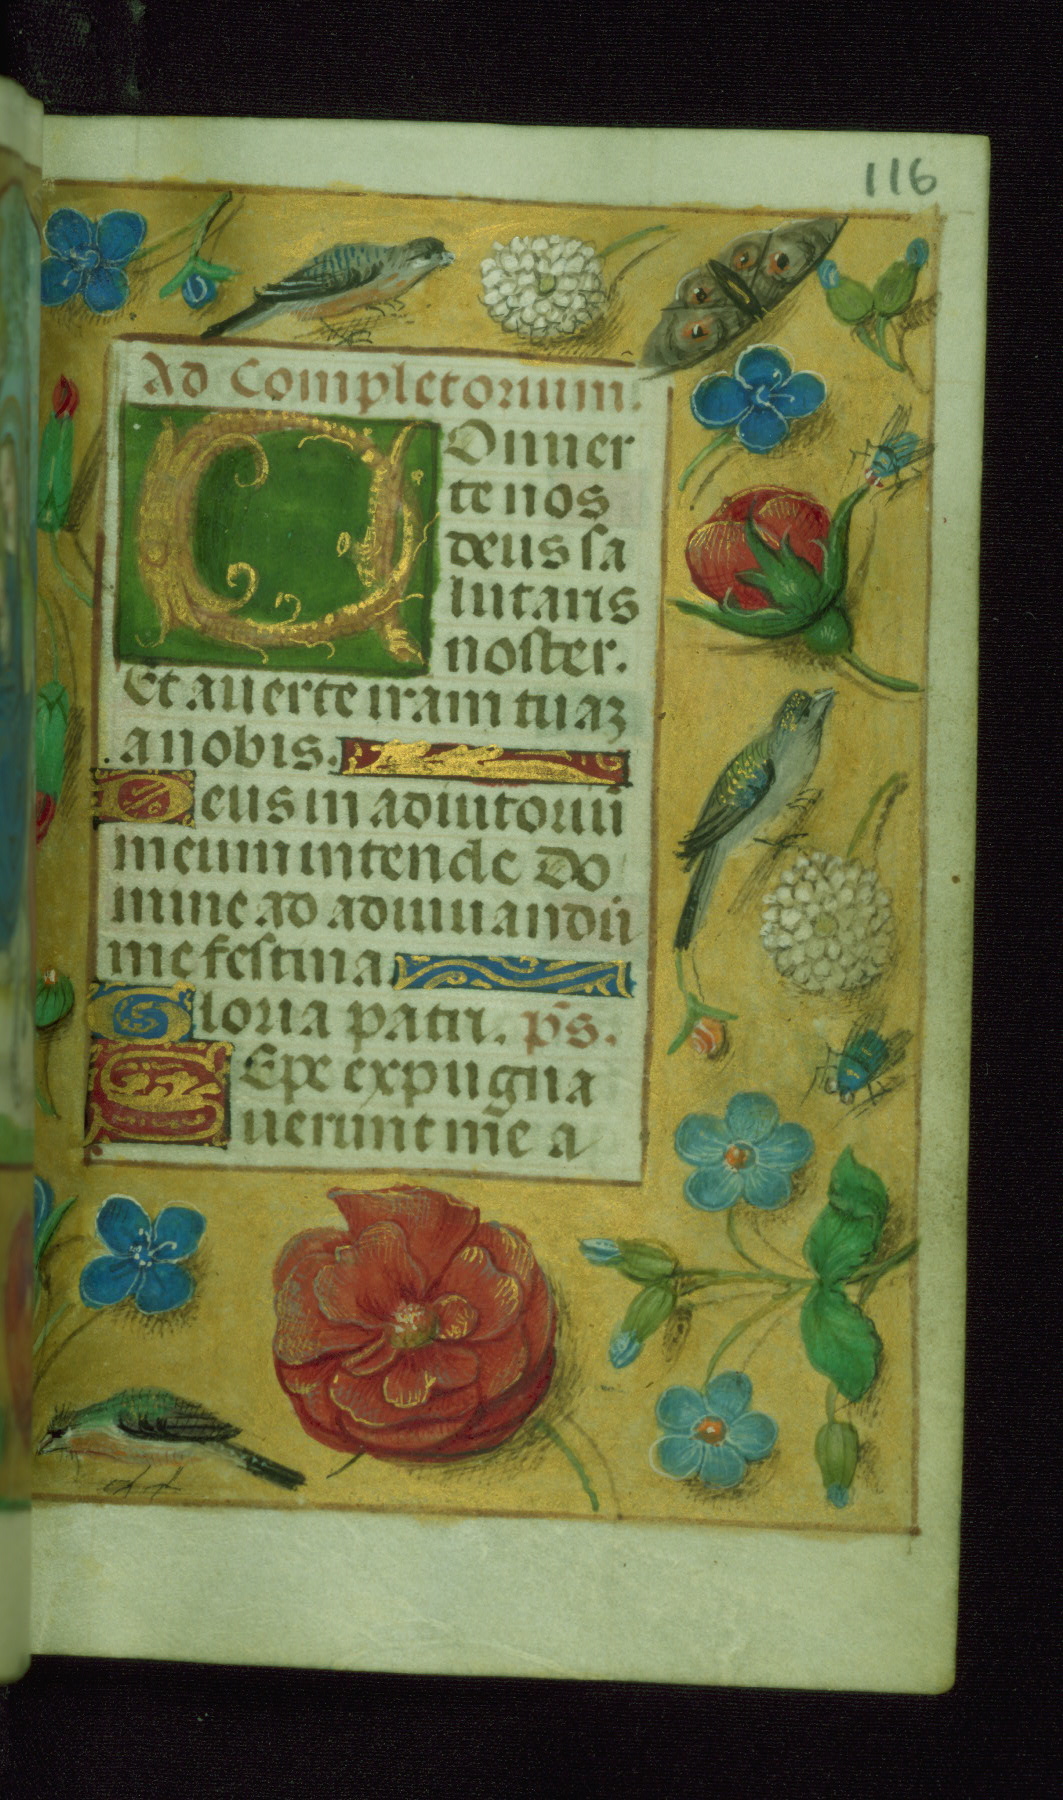 116
Ad Completorium.
Conuer
te nos
deus sa
lutaris
noster.
Et auerte iram tuaʒ
a nobis.
Deus in adiutoriū
meum intende Do
mine ad adiuuandū
me festina
Gloria patri. p̄s.
SEpe expugna
uerunt me a